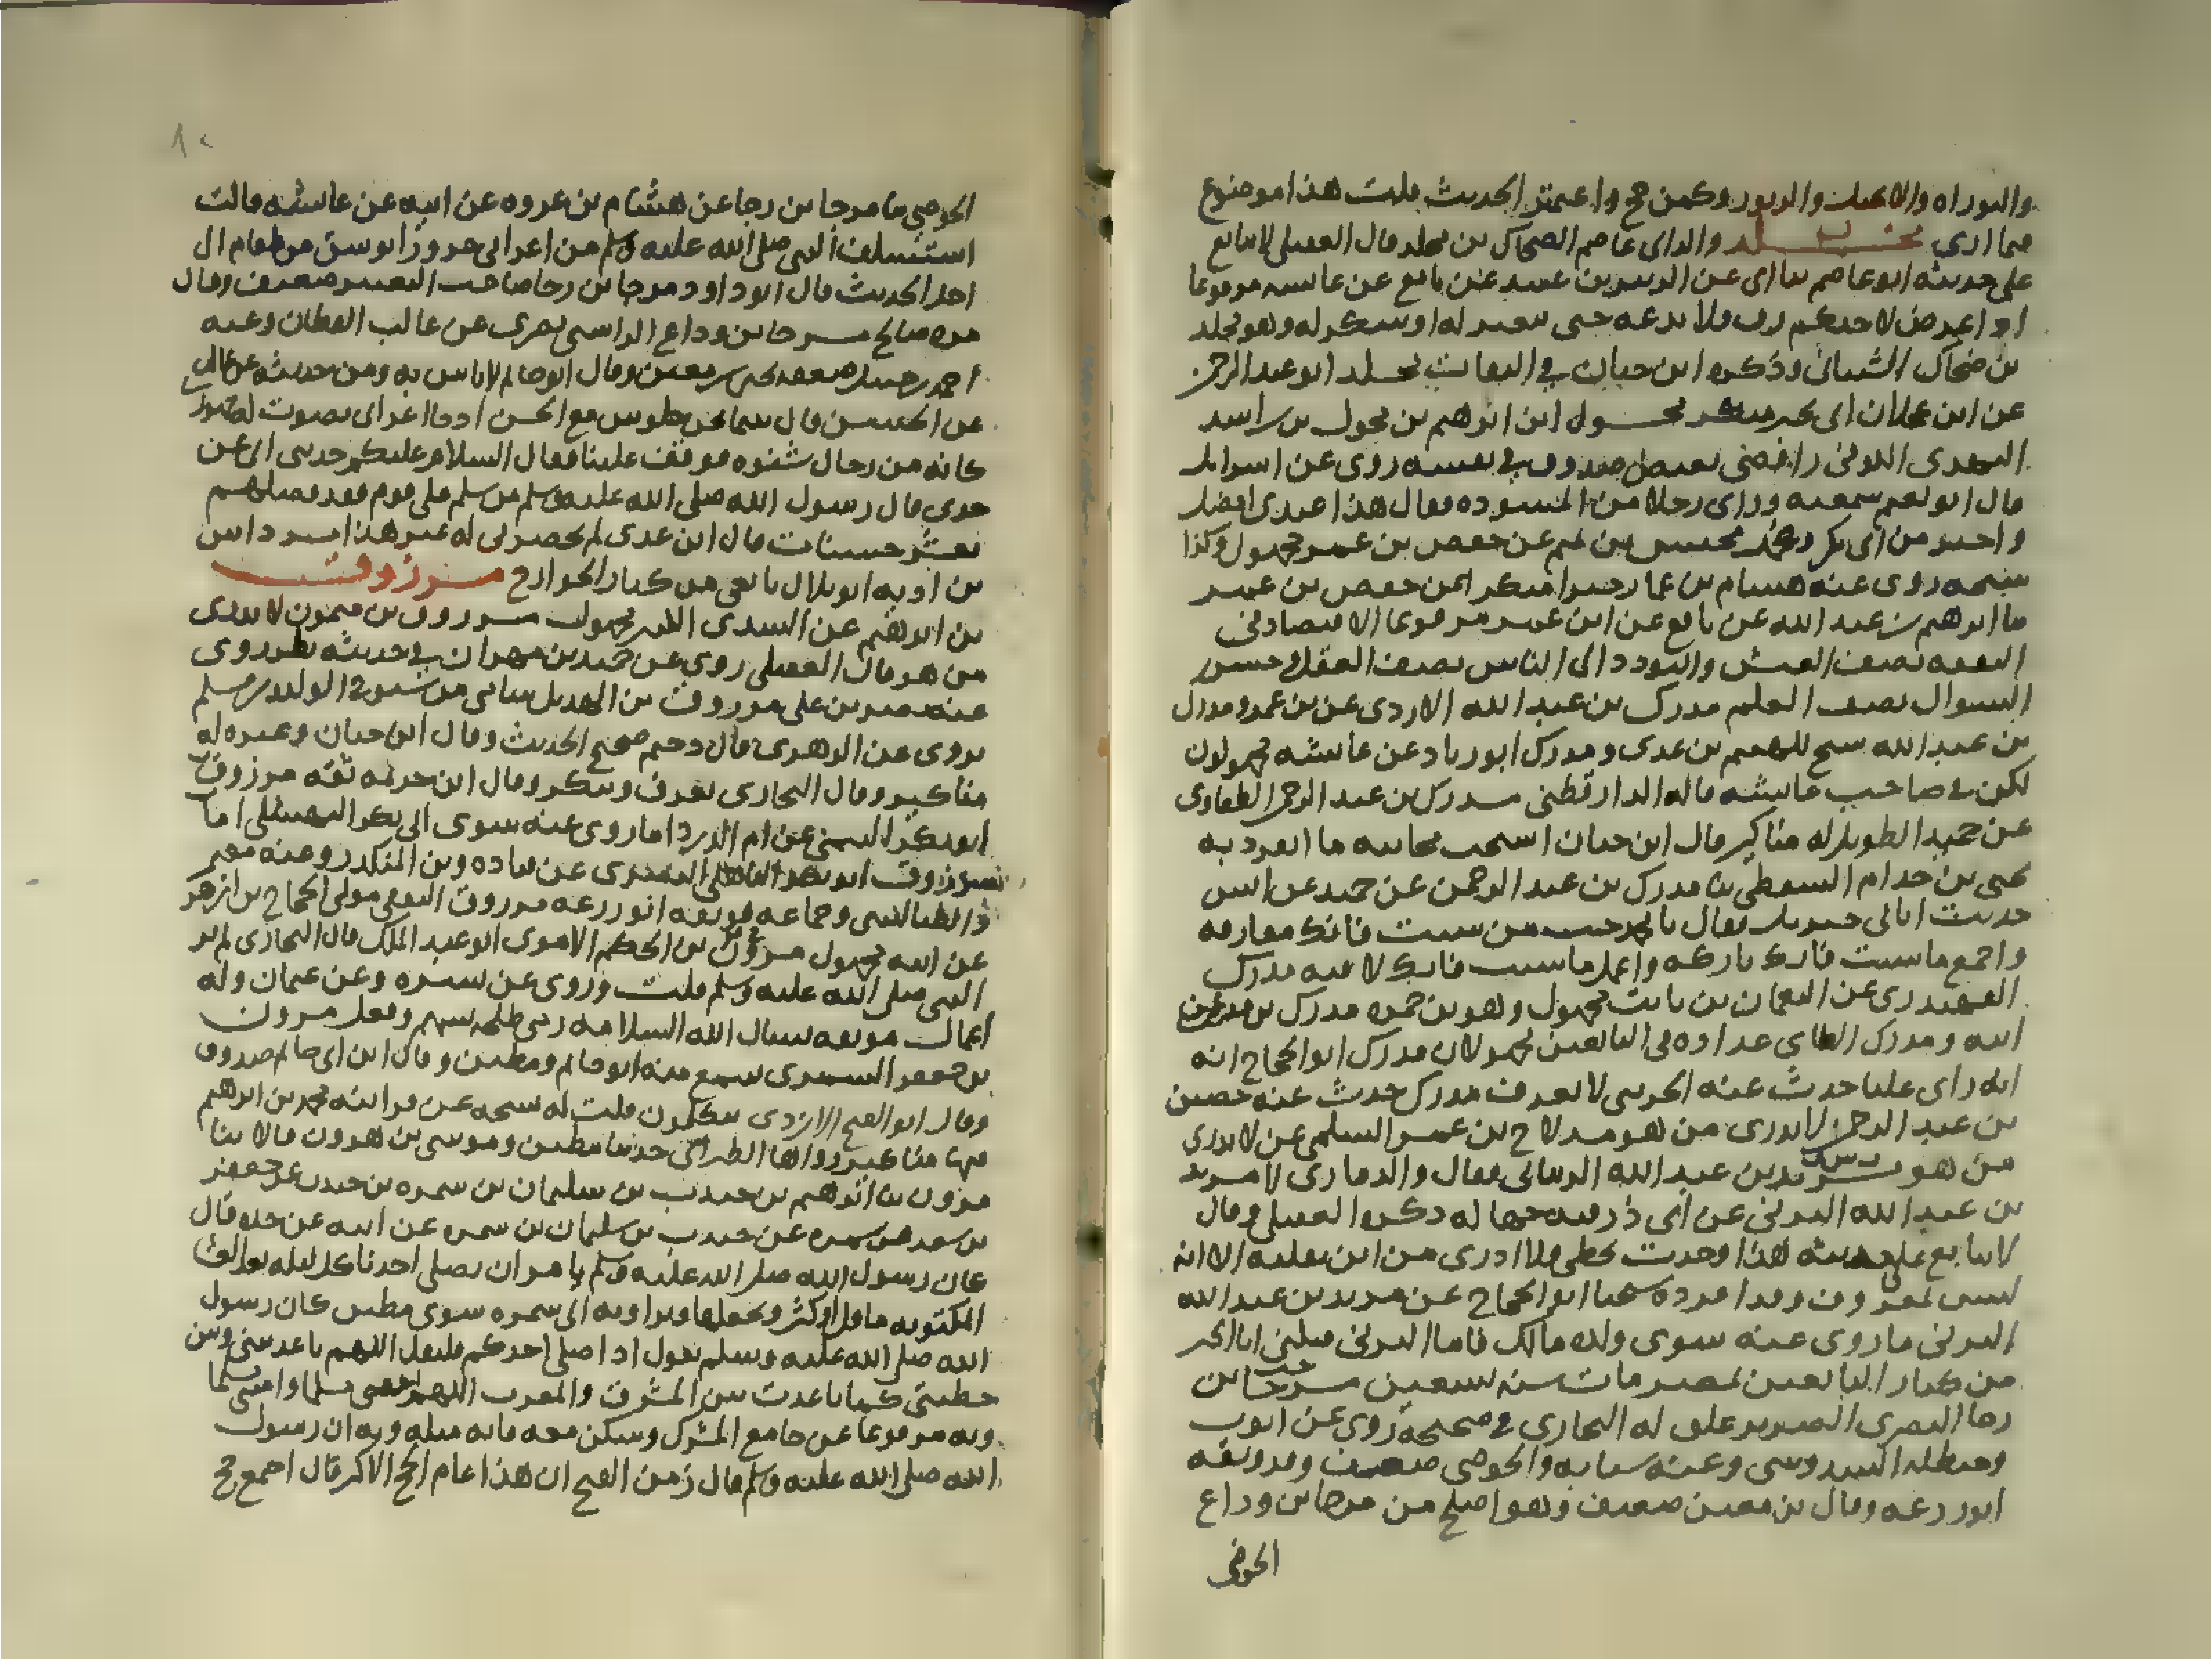 والتوراة والانجيل والزبور وكمن حج واعتمر الحديث قلت هذا موضوع
فيما ارى مخلد والد ابي عاصم الضحاك بن مخلد قال العقيلي لا يتابع
على حديثه ابو عاصم ثنا ابي عن الزبير بن عبيد عن نافع عن عائشة مرفوعا
اذا عرض لاحدكم رزق فلا يدعه حتى يتغير له او يتنكر له وهو مخلد
بن ضحاك الشيباني وذكره ابن حبان في الثقات مخلد ابو عبد الرحمن
عن ابن عجلان اتى بخبر منكر مخول ابن ابرهيم بن مخول بن راشد
النهدي الكوفي رافضي بغيض صدوق في نفسه روى عن اسرائيل
قال ابو نعيم سمعته وراى رجلا من المسوده فقال هذا عندي افضل
واخير من ابي بكر وعمر مخيس بن تميم عن حفص بن عمر مجهول وكذا
شيخه روى عنه هشام بن عمار خبرا منكرا عن حفص بن عمر
ثنا ابرهيم بن عبد الله عن نافع عن ابن عمر مرفوعا الاقتصاد في
النفقة نصف العيش والتودد الى الناس نصف العقل وحسن
السوال نصف العلم مدرك بن عبد الله الازدي عن بن عمرو ومدرك
بن عبد الله شيخ للهيثم بن عدي ومدرك ابو زياد عن عائشة مجهولون
لكن في صاحب عائشة قاله الدارقطني مدرك بن عبد الرحمن الطفاوي
عن حميد الطويل له مناكير قال ابن حبان استحب مجانبة ما انفرد به
يحيى بن خذام السقطي ثنا مدرك بن عبد الرحمن عن حميد عن انس
حديث اتاني جبريل فقال يا محمد حب من شيت فانك مفارقه
واجمع ما شيت فانك تاركه واعمل ما شيت فانك لاقيه مدرك
عن النعمان بن ثابت مجهول وهو بن حمزه مدرك
ابيه ومدرك الطاي عداده في التابعين مجهولان مدرك ابو الحجاج انه
انه راى عليا حدث عنه الخريبي لا يعرف مدرك حدث عنه حصين
بن عبد الرحمن لا يدرى من هو مدلاج بن عمرو السلمي عن لا يدرى
من هو مرثد بن عبد الله الزماني فقال والذماري لا مرثد
بن عبد الله اليزني عن ابي ذر فيه جهالة ذكره العقيلي وقال
لا يتابع على حديثه هذا وجدت بخطي فلا ادري من اين نقلته الا انه
ليس بمعروف وقد افرده شيخنا ابو الحجاج عن مرثد بن عبد الله
اليزني ما روى عنه سوى ولده مالك فاما اليزني فيكنى ابا الخير
من كبار التابعين بمصر مات سنة تسعين مرجا بن
رجا البصري الضرير علق له البخاري في صحيحه روى عن ايوب
وحنظلة السدوسي وعنه شبابه والحوضي ضعيف وقد وثقه
ابو زرعة وقال بن معين ضعيف وهو اصلح من مرجا بن وداع
الحوضي
الحوضي ثنا مرجا بن رجا عن هشام بن عروه عن ابيه عن عائشة قالت
استسلف النبي صلى الله عليه وسلم من اعرابي جزورا بوسق من طعام الى
اخر الحديث قال ابو داود مرجا بن رجا صاحب التعبير ضعيف وقال
مره صالح مرجا بن وداع الراسبي بصري عن غالب القطان وعنه
احمد بن حنبل ضعفه يحيى بن معين وقال ابو حاتم لا باس به ومن حديثه عن غالب
عن الحسن قال بينما نحن جلوس مع الحسن اذ جا اعرابي بصوت له جهوري
كانه من رجال شنوه فوقف علينا فقال السلام عليكم حدثني ابي عن
جدي قال رسول الله صلى الله عليه وسلم من سلم على قوم فقد فضلهم
بعشر حسنات قال ابن عدي لم يحضرني له غير هذا مرداس
بن اديه ابو بلال تابعي من كبار الخوارج مرزوق
بن ابرهيم عن السدي الكبير مجهول مرزوق بن ميمون لا يدرى
من هو قال العقيلي روى عن حميد بن مهران في حديثه نظر روى
عنه نصر بن علي مرزوق بن الهذيل شامي من شيوخ الوليد بن مسلم
يروي عن الزهري قال دحيم صحيح الحديث وقال ابن حبان وغيره له
مناكير وقال البخاري تعرف وتنكر وقال ابن خزيمه ثقة مرزوق
ابو بكر التيمي عن ام الدردا ما روى عنه سوى ابي بكر النهشلي اما
مرزوق ابو بكر الباهلي البصري عن قتاده وبن المنكدر وعنه معتمر
والطيالسي وجماعه فوثقه ابو زرعه مرزوق الثقفي مولى الحجاج بن ازهر
عن ابيه مجهول مروان بن الحكم الاموي ابو عبد الملك قال البخاري لم ير
النبي صلى الله عليه وسلم قلت وروى عن بسره وعن عثمان وله
اعمال موبقه نسال الله السلامه رمى طلحه بسهم وفعل مروان
بن جعفر السمري سمع منه ابو حاتم ومطين وقال ابن ابي حاتم صدوق
وقال ابو الفتح الازدي يتكلمون قلت له نسخه عن قرابته محمد بن ابرهيم
فيها مناكير رواها الطبراني حدثنا مطين وموسى بن هرون قالا ثنا
مروان بن ابرهيم بن خبيب بن سليمان بن سمره بن جندب عن جعفر
بن سعد بن سمره عن خبيب بن سليمان بن سمره عن ابيه عن جده قال
كان رسول الله صلى الله عليه وسلم يامر ان يصلي احدنا كل ليله بعد
المكتوبه ما قل او كثر ويجعلها وترا وبه الى سمره سوى مطين كان رسول
الله صلى الله عليه وسلم يقول اذا صلى احدكم فليقل اللهم باعد بيني وبين
خطيتي كما باعدت بين المشرق والمغرب اللهم احيني مسلما وامتني مسلما
وبه مرفوعا من جامع المشرك وسكن معه فانه مثله وبه ان رسول
الله صلى الله عليه وسلم قال زمن الفتح ان هذا عام الحج الاكبر قال اجتمع حج